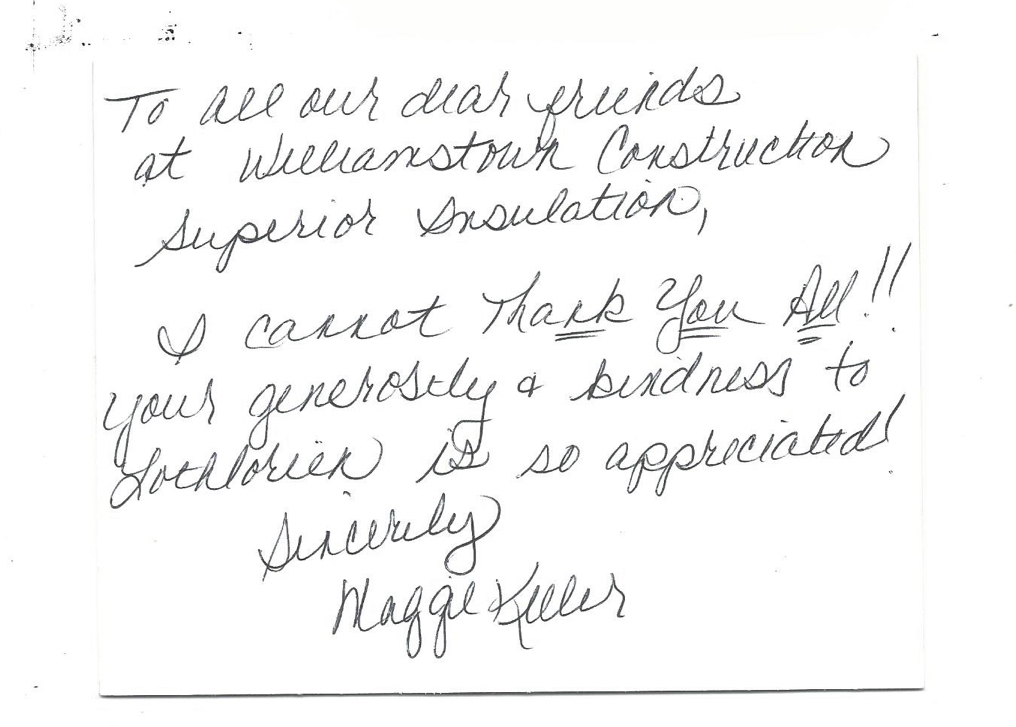 To all our dear friends
at Williamstown Construction
Superior Insulation,
I cannot Thank You All!!
Your generosity & kindness to
Lothlorien is so appreciated!
Sincerely
Maggie Keller